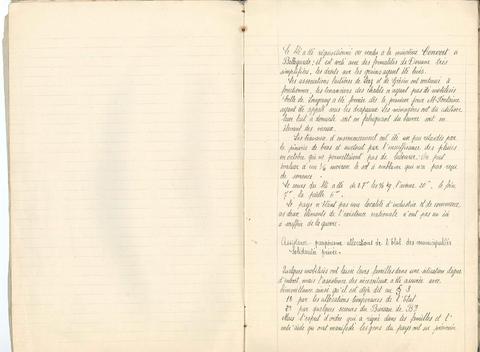 Le blé a été réquisitionné ou vendu à la minoterie Convert à
Bellegarde; il est entré avec des formalités de Douane très
simplifiées, les droits sur les grains ayant été levés.
Les associations laitières de et de Grésin ont continué à
fonctionner, les tenanciers des chalets n'ayant pas été mobilisés
Celle de Longeray a été fermée dès le premier jour M.
ayant été appelé sous les drapeaux. Les ménagères ont dû utiliser
leur lait à domicile soit en fabriquant du beurre soit en
élevant des veaux.
Les travaux d'ensemencement ont été un peu retardés par
la pénurie de bras et surtout par l'insuffisance des pluies
en octobre qui ne permettaient pas de labourer. On peut
évaluer à un environ le sol à emblaver qui n'a pas reçu
de semence.
Le cours du blé a été de 27f les % kg l'avoine 20f, le foin
7f la paille 6f
Le pays n'étant pas une localité d'industrie et de commerce,
ces deux éléments de l'existence nationale n'ont pas eu ici
à souffrir de la guerre.
Assistance - paupérisme allocations de l'Etat, des municipalités
Solidarité privée.
Quelques mobilisés ont laissé leurs familles dans une situation digne
d'intérêt mais l'assistance des nécessiteux a été assurée avec
bienveillance ainsi qu'il est déjà dit au § 3
1º par les allocations temporaires de l'Etat
2º par quelques secours du Bureau de Bce
Mais l'esprit d'ordre qui a régné dans les familles et l'
entr'aide qu'ont manifesté les gens du pays ont su prévenir